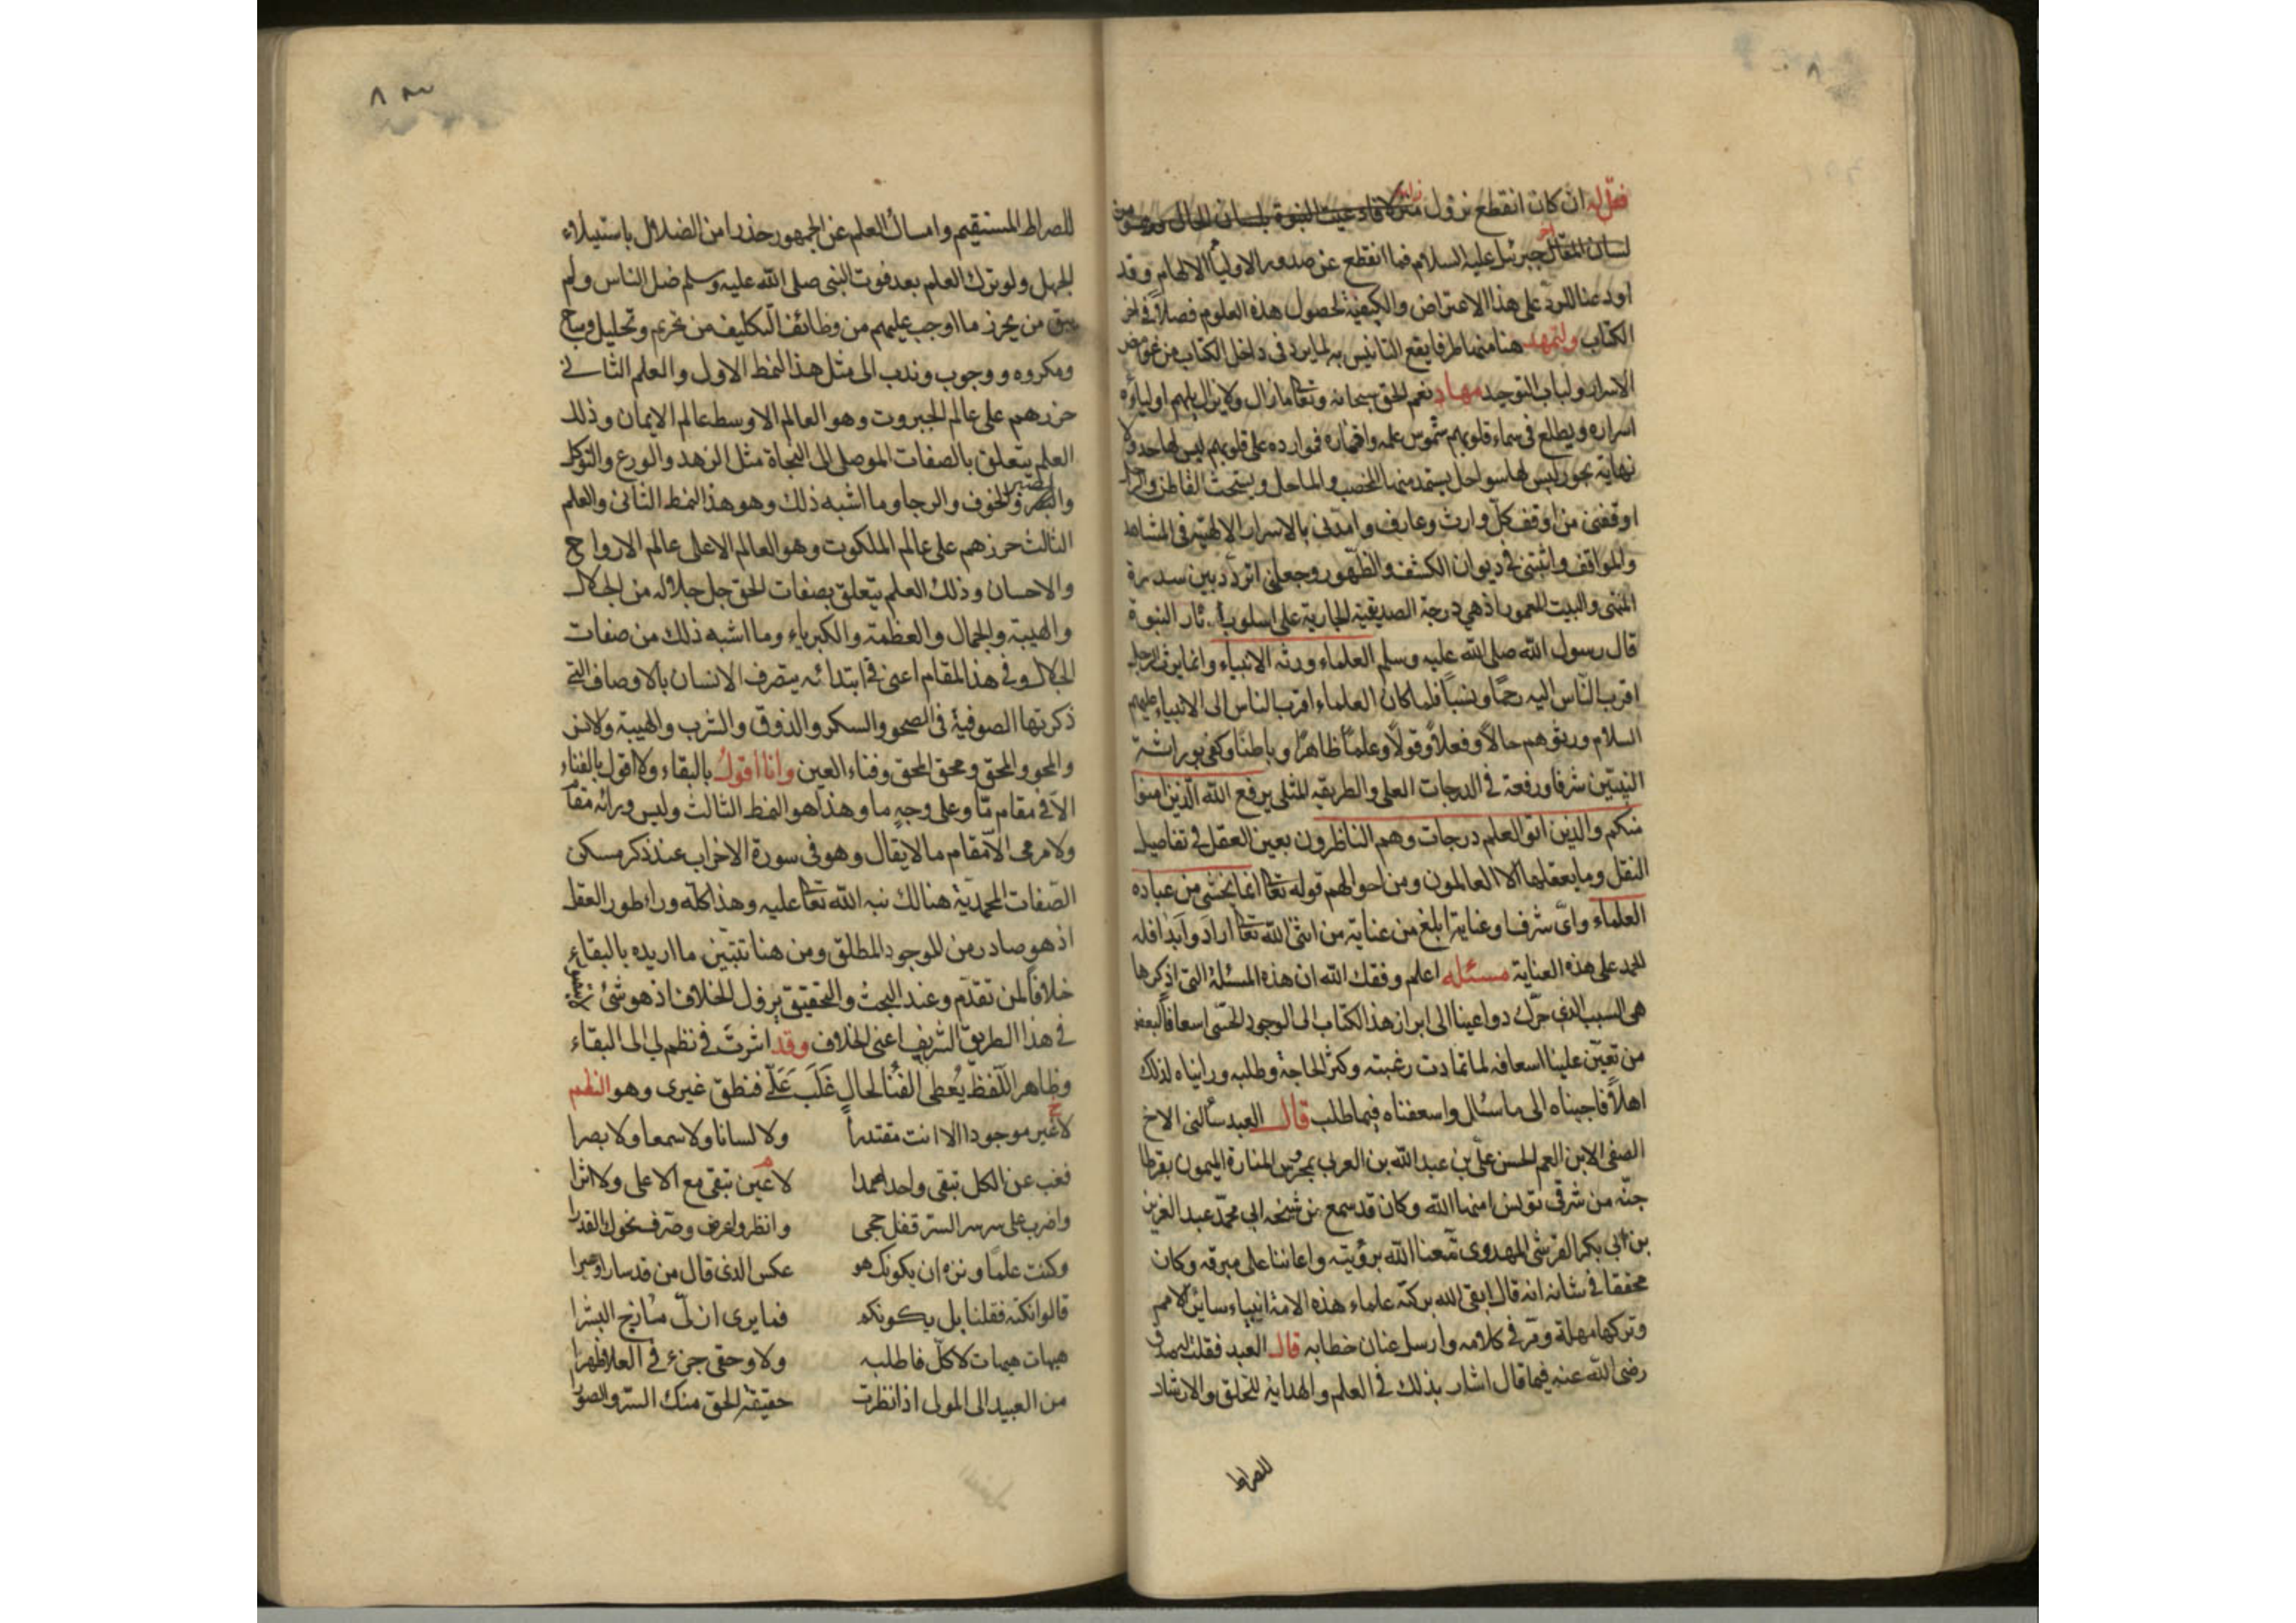 فقل له ان كان انقطع نزول
لسان المقال جبرئيل عليه السلام فما انقطع عن صدور الاولياء الالهام وقد
اودعنا للرد على هذا الاعتراض والكيفية لحصول هذه العلوم فصلاً في اخر
الكتاب ولنمهد هنا منها طرفا يقع التانيس به لما يرد في داخل الكتاب من غوامض
الاسرار ولباب التوحيد مهاد نعم الحق سبحانه وتعا مازال ولا يزال يلهم اولياءه
اسراره ويطلع في سماء قلوبهم شموس علمه واقماره فموارده على قلوبهم ليس لها حد ولا
نهاية بحور ليس لها سواحل يستمد منها الخصب والماحل ويستحث القاطن والراحل
اوقفني من اوقف كل وارث وعارف وامدني بالاسرار الالهية في المشاهد
والمواقف واثبتني في ديوان الكشف والظهور وجعلني اتردد بين سدرة
المنتهى والبيت المعمور اذ هي درجة الصديقية الجارية على اسلوب آثار النبوة
قال رسول الله صلى الله عليه وسلم العلماء ورثه الانبياء وانما يرث الرجل
اقرب الناس اليه رحمًا ونسبًا فلما كان العلماء اقرب الناس الى الانبياء عليهم
السلام ورثوهم حالاً وفعلاً وقولاً وعلمًا ظاهرًا وباطنًا وكفى بوراثة
النبيّين شرفا ورفعة في الدرجات العلى والطريقه المثلى يرفع الله الّذين امنوا
منكم والذين اتوا العلم درجات وهم الناظرون بعين العقل في تفاصيل
النقل وما يعقلها الا العالمون ومن احوالهم قوله تعا انما يخشى من عباده
العلماء واىّ شرف وغاية ابلغ من عناية من اثنى الله تعا اراد وابدا فله
الحمد على هذه العناية مسئله اعلم وفقك الله ان هذه المسئلة التي اذكرها
هى السبب الذى حرّك دواعينا الى ابراز هذا الكتاب الى الوجود الحسّى اسعافًا لبعض
من تعيّن علينا اسعافه لما تمادت رغبته وكثر الحاحة وطلبه ورايناه لذلك
اهلاً فاجبناه الى ما سئال واسعفناه فيما طلب قال العبد سألني الاخ
الصفى الابن العم الحسن علىّ بن عبد الله بن العربى بمحرس المنارة الميمون بقرطا
جنّه من شرقى تونس امنها الله وكان قد سمع من شيخه ابى محمّد عبد العزيز
بن ابي بكر القرشى المهدوى متّعنا الله برؤيته واعاننا على مبرته وكان
محققا في شانه انه قال ابقى الله بركته علماء هذه الامة انبياء سائر الامم
وتركها مهلة ومرّ في كلامه وارسل عنان خطابه قال العبد فقلت ليصدق
رضى الله عنه فيما قال اشار بذلك في العلم والهداية للخلق والارشاد
للصراط
للصراط المستقيم وامساك العلم عن الجمهور حذرا من الضلال باستيلاء
الجهل ولو ترك العلم بعد فوت النبى صلى الله عليه وسلم ضل الناس ولم
يبق من يحرز ما اوجب عليهم من وظائف التكليف من تحريم وتحليل ومباح
ومكروه ووجوب وندب الى مثل هذا النمط الاول والعلم الثانى
حرزهم على عالم الجبروت وهو العالم الاوسط عالم الايمان وذلك
العلم يتعلق بالصفات الموصلى الى النجاة مثل الزهد والورع والتوكل
والصبر والخوف والرجا وما اشبه ذلك وهو هذا النمط الثانى والعلم
الثالث حرزهم على عالم الملكوت وهو العالم الاعلى عالم الارواح
والاحسان وذلك العلم يتعلق بصفات الحق جل جلاله من الجلال
والهيبة والجمال والعظمة والكبرياء وما اشبه ذلك من صفات
الجلال وفى هذا المقام اعنى في ابتدائه يتصرف الانسان بالاوصاف التى
ذكرتها الصوفية فى الصحو والسكر والذوق والشرب والهيبة والانس
والمحو والمحق ومحق المحق وفناء العين وانا اقول بالبقاء ولا اقول بالفناء
الا في مقام مّا وعلى وجهٍ ما وهذا هو النمط الثالث وليس ورائه مقام
ولا مرمى الا مقام ما لا يقال وهو فى سورة الاحزاب عند ذكر مسكن
الصفات المحمدية هنالك نبه الله تعا عليه وهذا كلّه وراء طور العقل
اذ هو صادر من الموجود المطلق ومن هنا تتبّين ما اريده بالبقاء
خلافًا لمن تقدّم وعند البحث والتحقيق يزول الخلاف اذ هو شئ لا يتصور
في هذا الطريق الشريف اعنى الخلاف وقد اشرت في نظم لى الى البقاء
وظاهر اللّفظ يُعطى الفنا لحال غَلَبَ عَلَىّ فنطق غيرى وهو النظم
لا غير موجود الا انت مقتدرا ولا لسانا ولا سمعا ولا بصرا
فغب عن الكل تبقى واحد احمدا لا عين تبقى مع الاعلى ولا اثرا
واضرب على سر سر السرّ قفل حجى وانظر واعرض وصرف نحوك القدرا
وكنت علمًا ونزه ان يكونك هو عكس الذى قال من قد سار او صبرا
قالوا نكنه فقلنا بل يكونكم فما يرى ان لّ مازج البشرا
هيهات هيهات لا كلّ فاطلبه ولا وحقى جزء في العلا ظهرا
من العبيد الى المولى اذا نظرت حقيقة الحق منك السرّ والصورا